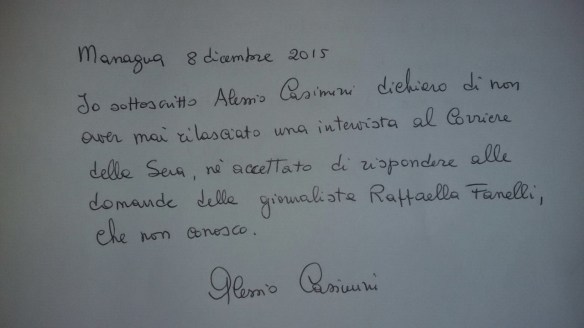 Managua 8 dicembre 2015
Io sottoscritto Alessio Casimirri dichiaro di non
aver mai rilasciato una intervista al Corriere
della Sera, nè accettato di rispondere alle
domande della giornalista Raffaella Fanelli,
che non conosco.
Alessio Casimirri